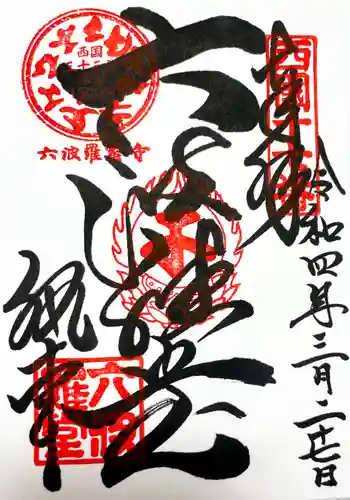 奉拝
西国十七番
令和四年三月二十七日
六波羅堂
西国
六波羅蜜寺
執事
六波羅堂